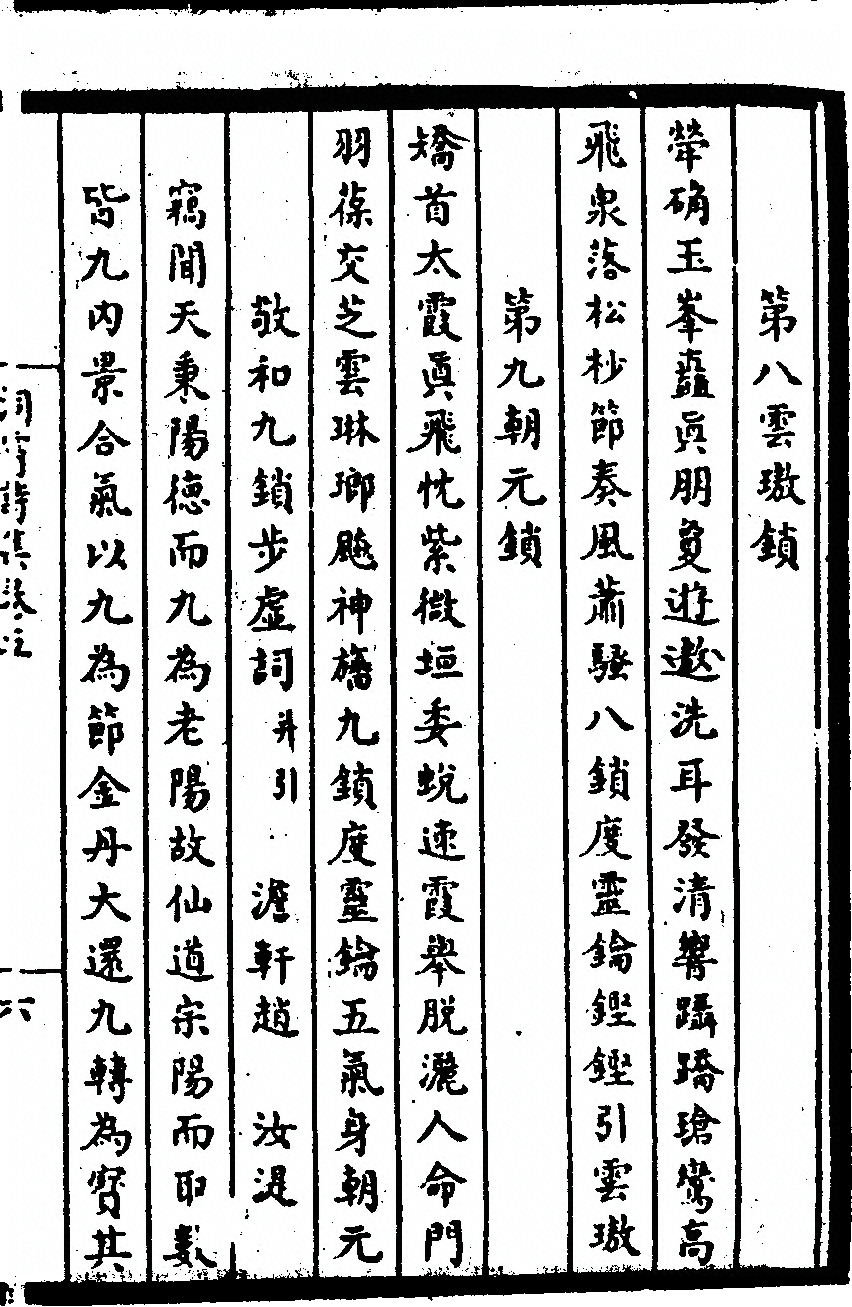 第八雲璈鎖
犖确玉峯矗眞朋夐遊遨洗耳發清響躡蹻瑲鸞高
飛泉落松杪節奏風蕭騷八鎖度靈鑰鏗鏗引雲璈
第九朝元鎖
矯首太霞眞飛忱紫微垣委蛻速霞舉脱灑人命門
羽葆交芝雲琳瑯颭神旛九鎖度靈鑰五氣身朝元
敬和九鎖步虛詞 并引 澹軒趙 汝湜
竊聞天秉陽德而九為老陽故仙道宗陽而取數
皆九内景合氣以九為節金丹大還九轉為寳其
洞霄詩集卷之
六